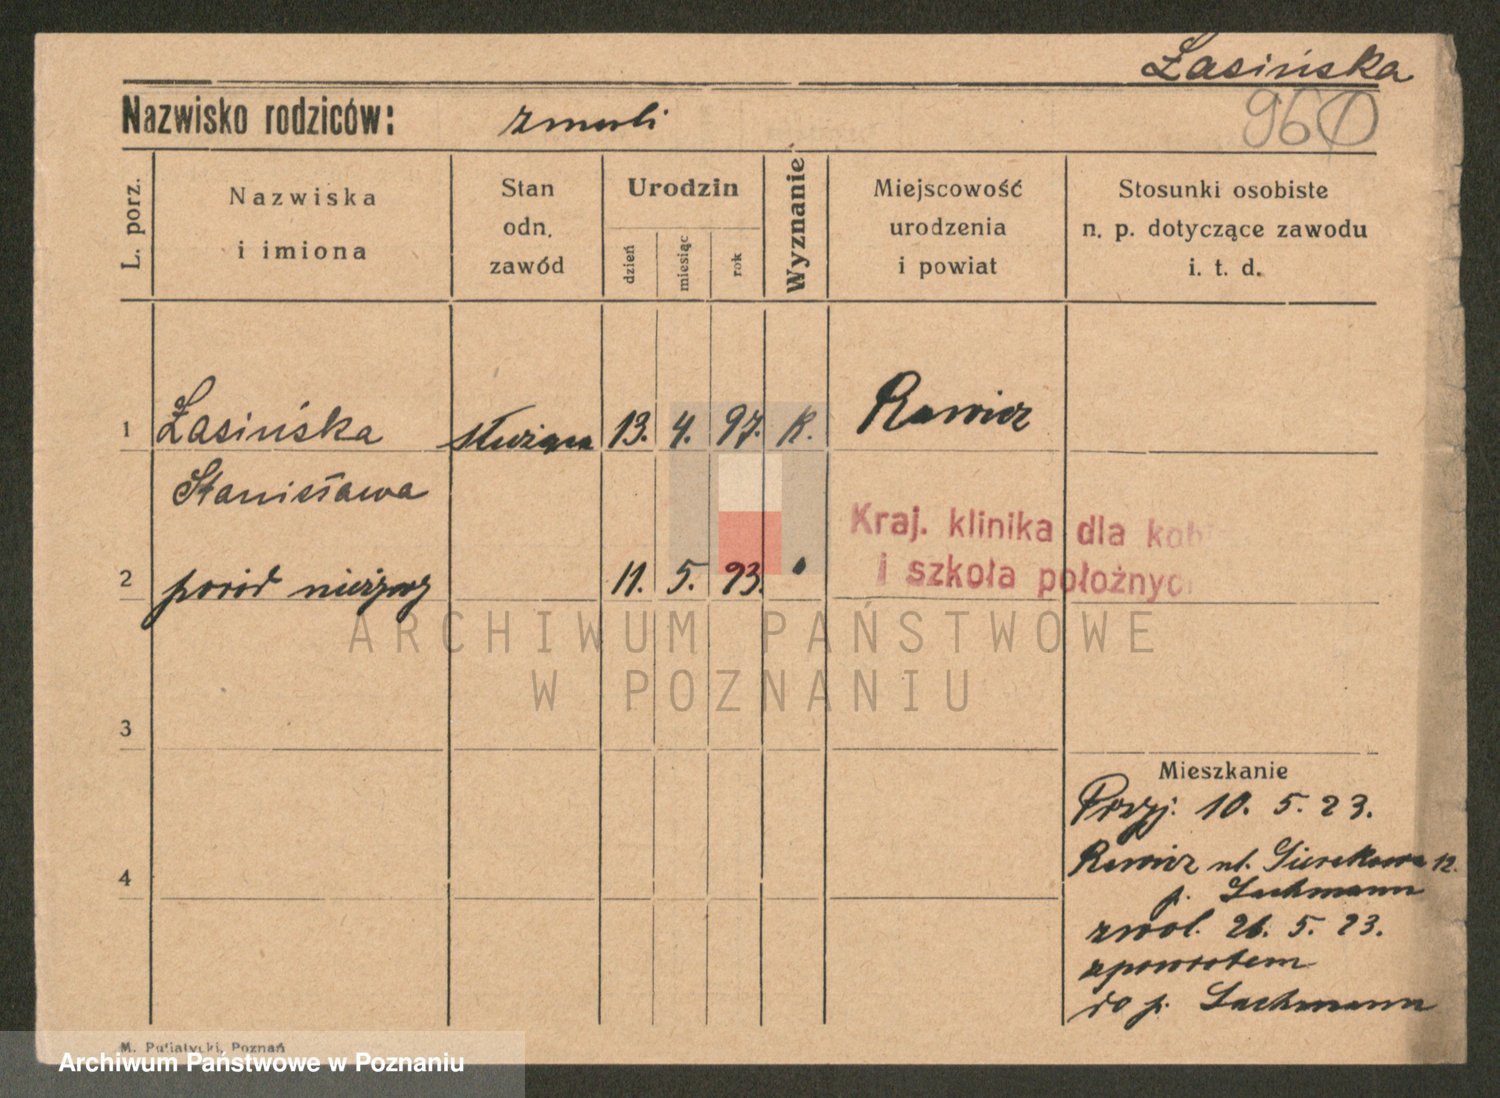 Łasińska
960
Nazwisko rodziców: zmarli
L. porz.
Nazwiska
i imiona
Stan
odn.
zawód
Urodzin
dzień
miesiąc
rok
Wyznanie
Miejscowość
urodzenia
i powiat
Stosunki osobiste
n. p. dotyczące zawodu
i. t. d.
1 Łasińska służąca 13. 4. 97. K. Rawicz
Stanisława
Kraj. klinika dla kob
i szkoła położnyc
2 poród nieżywy 11. 5. 23.
ARCHIWUM PAŃSTWOWE
W POZNANIU
3
Mieszkanie
Przyj. 10. 5. 23.
4
Rawicz ul. Sierakowa 12.
p. Lachmann
zwol. 26. 5. 23.
zpowrotem
do p. Lachmann
M. Putiatycki, Poznań
Archiwum Państwowe w Poznaniu